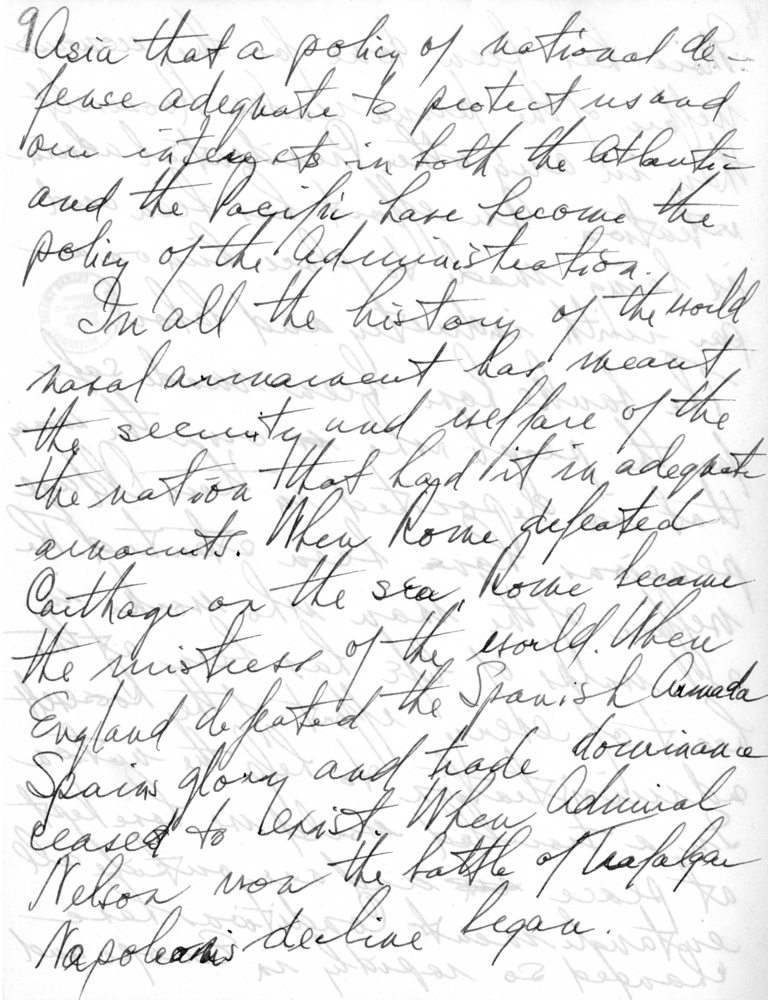 9
Asia that a policy of national de-
fense adequate to protect us and
our interests in both the Atlantic
and the Pacific have become the
policy of the Administration.
In all the history of the world
naval armament has meant
the security and welfare of the
the nation that had it in adequate
amounts. When Rome defeated
Carthage on the sea, Rome became
the mistress of the world. When
England defeated the Spanish Armada
Spains glory and trade dominance
ceased to exist. When Admiral
Nelson won the battle of Trafalgar
Napoleon's decline began.